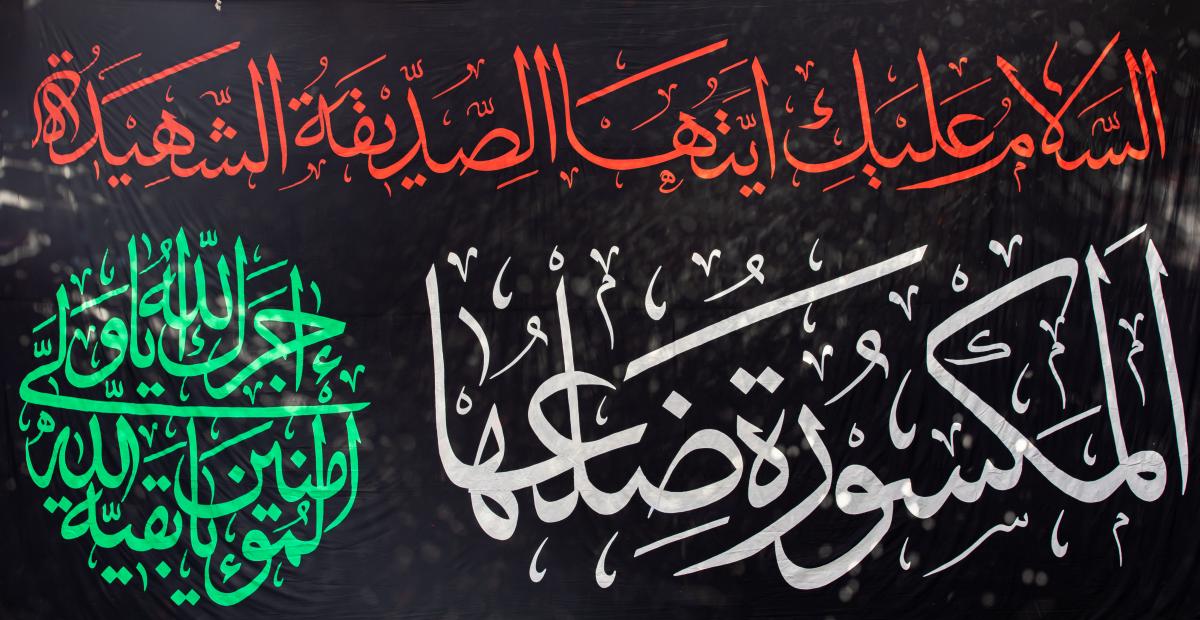 السَّلامُ عَلَيْكِ اَيَّتُهَا الصِّدّيقَةُ الشَّهيدَةُ
اَلْمَكْسُورَةُ ضِلْعُها
آجَرَكَ اللّٰهُ يا وَلِيَّ
الْمُؤْمِنينَ يا بَقِيَّةَ اللّٰهِ